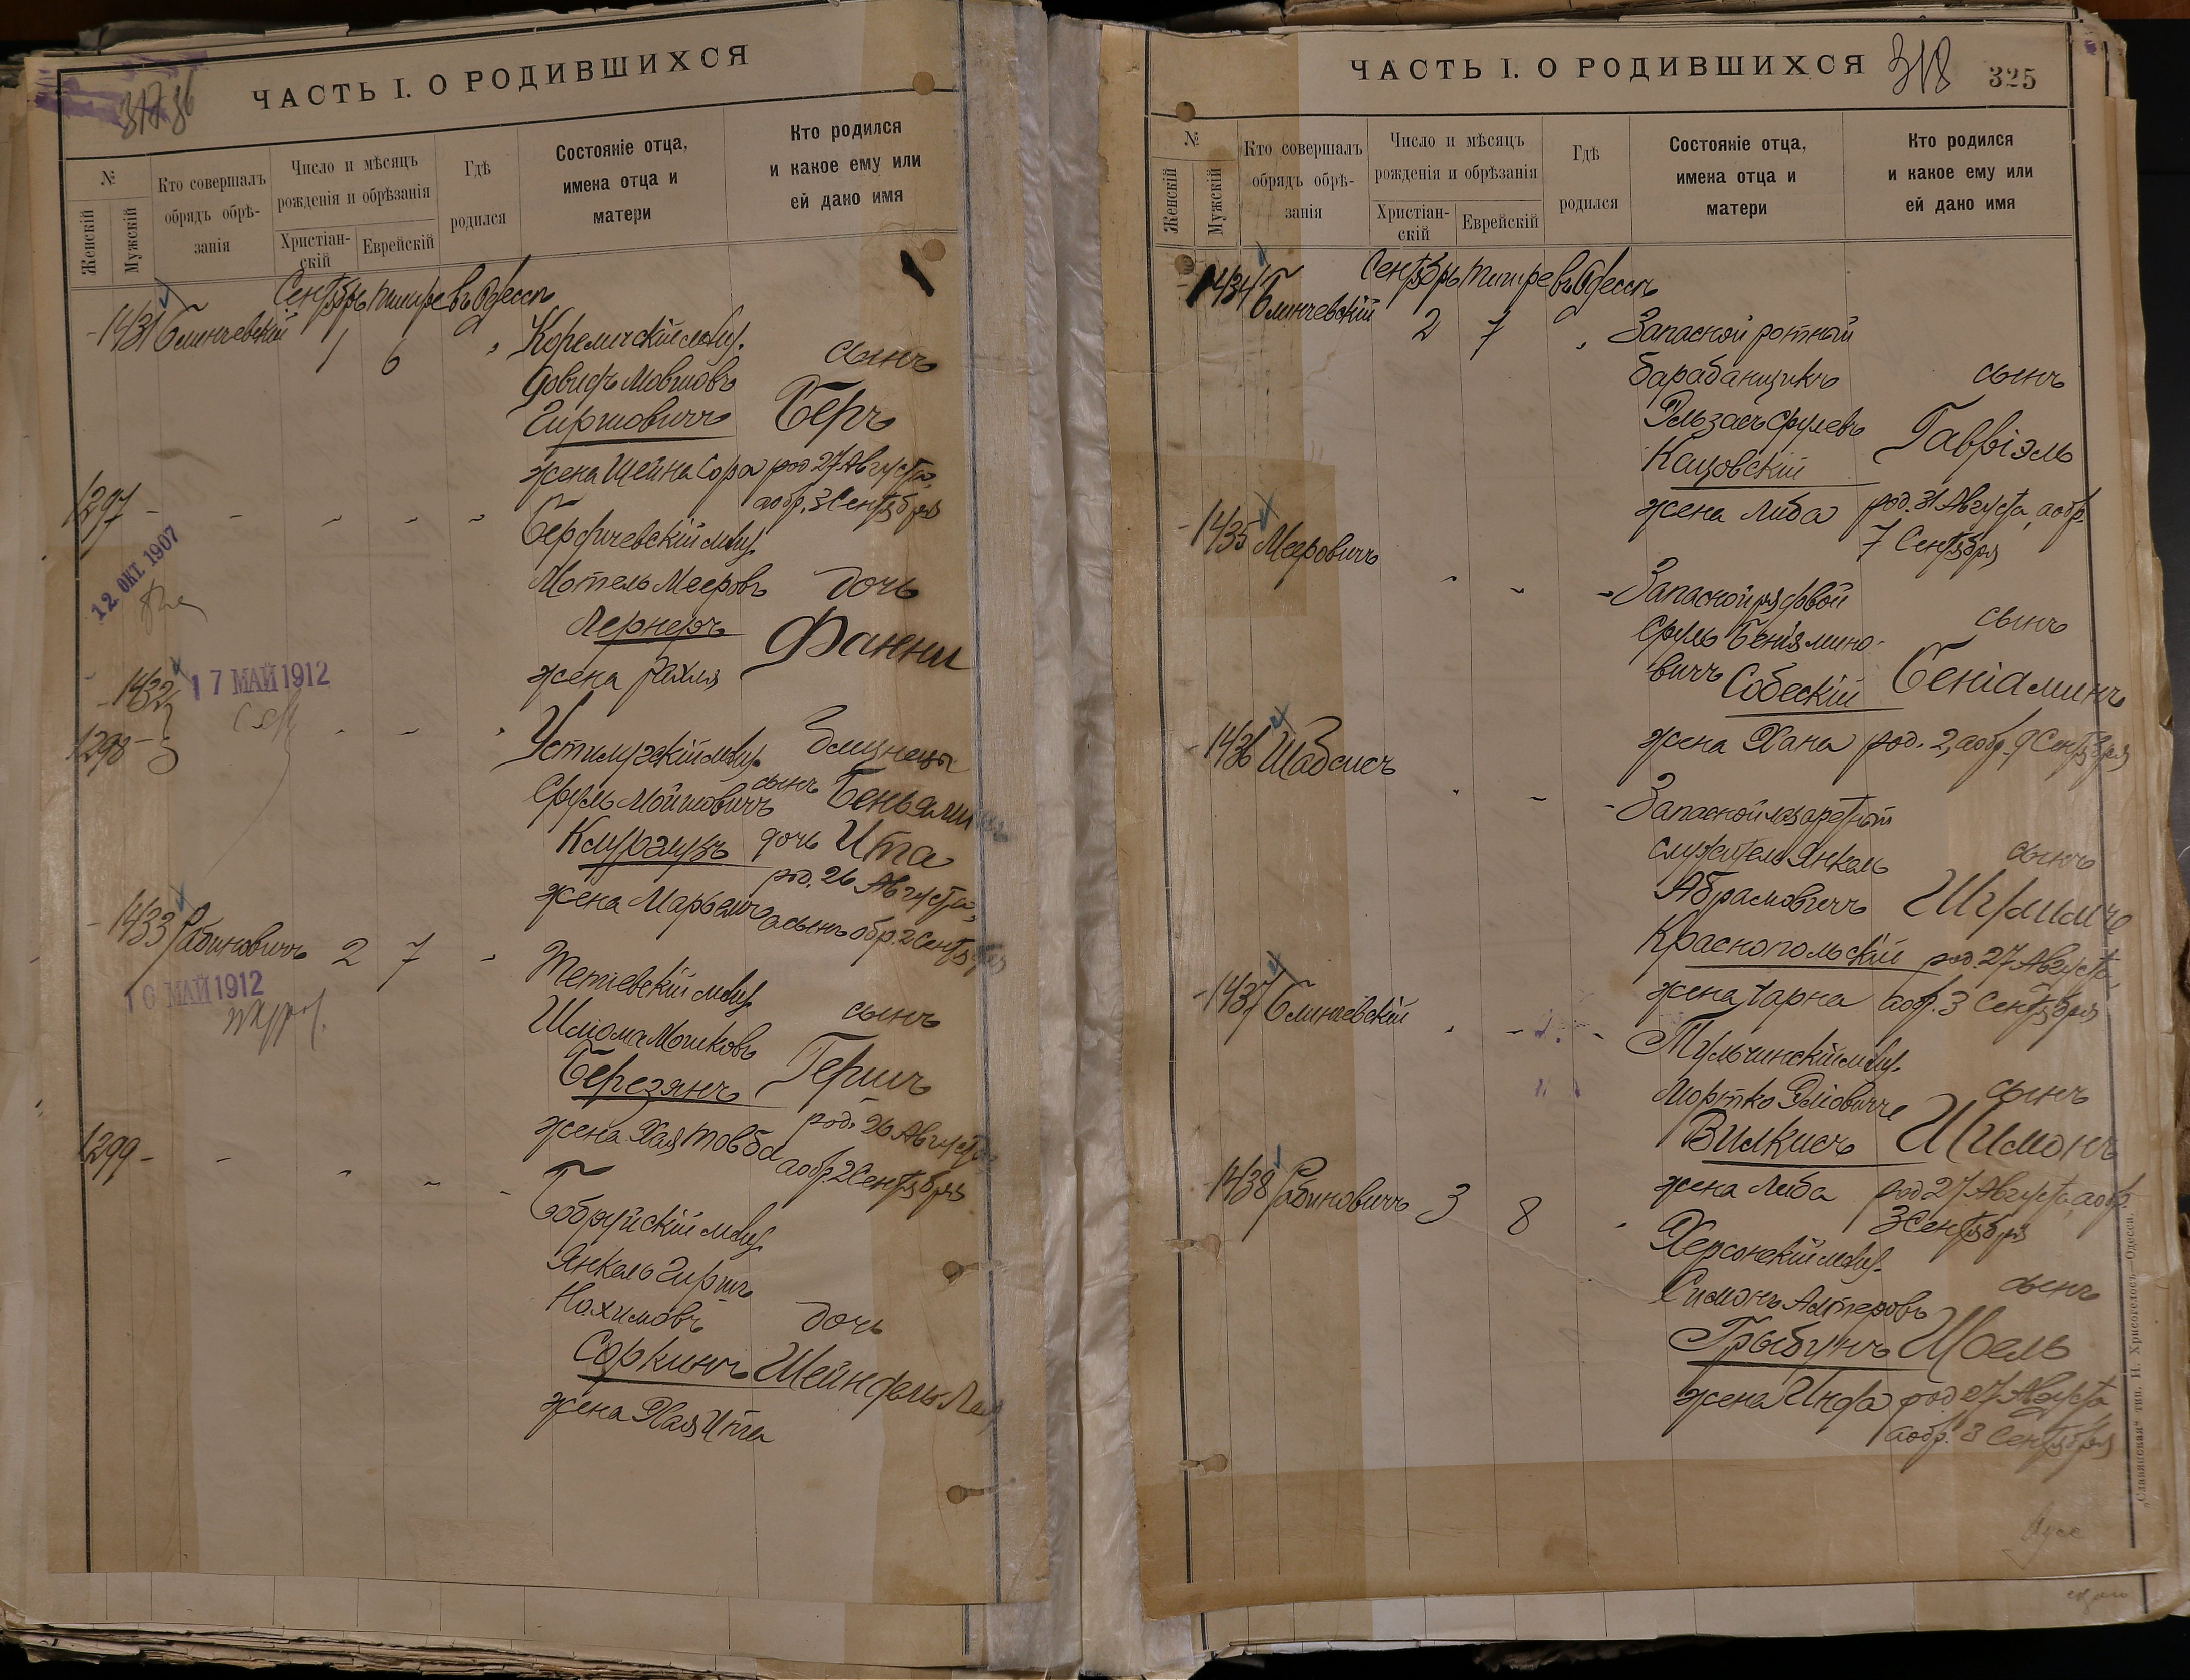 ЧАСТЬ I. О РОДИВШИХСЯ
№
Женскій
Мужскій
Кто совершалъ
обрядъ обрѣ-
занія
Число и мѣсяцъ
рожденія и обрѣзанія
Христіан-
скій
Еврейскій
Гдѣ
родился
Состояніе отца,
имена отца и
матери
Кто родился
и какое ему или
ей дано имя
Сентябрь тишре въ Одессѣ
1431 Блинчевскій 1 6
Кореличскій мѣщ.
Довидъ Мовшовъ
Гиршовичъ
жена Шейна Сора
сынъ
Беръ
род. 27 Августа,
а обр. 3 Сентября
1297
12 ОКТ. 1907
Бердичевскій мѣщ.
Мотель Мееровъ
Лернеръ
жена Рахля
дочь
Фанни
1432
1298
17 МАЙ 1912
Устилугскій мѣщ.
Сруль Мойшовичъ
жена Марьемъ
Близнецы
сынъ Беньяминъ
дочь Ита
род. 26 Августа,
а сынъ обр. 2 Сентября
1433 Рабиновичъ 2 7
10 МАЙ 1912
Тетіевскій мѣщ.
Шліома Мошковъ
Березянъ
жена Хая Товба
сынъ
Гершъ
род. 26 Августа
а обр. 2 Сентября
1299
Бобруйскій мѣщ.
Янкель Гиршъ
Нохимовъ
Соркинъ
жена Хая Ита
дочь
Шейндель Лея
ЧАСТЬ I. О РОДИВШИХСЯ
318
325
№
Женскій
Мужскій
Кто совершалъ
обрядъ обрѣ-
занія
Число и мѣсяцъ
рожденія и обрѣзанія
Христіан-
скій
Еврейскій
Гдѣ
родился
Состояніе отца,
имена отца и
матери
Кто родился
и какое ему или
ей дано имя
Сентябрь тишре въ Одессѣ
1434 Блинчевскій 2 7
Запасной ротный
барабанщикъ
Срулевъ
Кацовскій
жена Либа
сынъ
Гаврiэль
род. 31 Августа, а обр.
7 Сентября
1435 Мееровичъ
Запасной рядовой
Сруль Беніямино-
вичъ Собескій
жена Хана
сынъ
Беніаминъ
род. 2, а обр. 9 Сентября
1436 Шабсисъ
Запасной лазаретный
служитель Янкель
Абрамовичъ
Краснопольскій
жена Чарна
сынъ
род. 27 Августа,
а обр. 3 Сентября
1437 Блинчевскій
Тульчинскій мѣщ.
Мортко Эліовичъ
Вилкисъ
жена Либа
сынъ
Шимонъ
род 27 Августа, а обр.
3 Сентября
1438 Рабиновичъ 3 8
Херсонскій мѣщ.
Симонъ Алтеровъ
Грыбунъ
жена Инда
сынъ
Шоель
род 27 Августа
а обр. 3 Сентября
„Славянская" тип. Н. Хрисогелосъ.—Одесса.